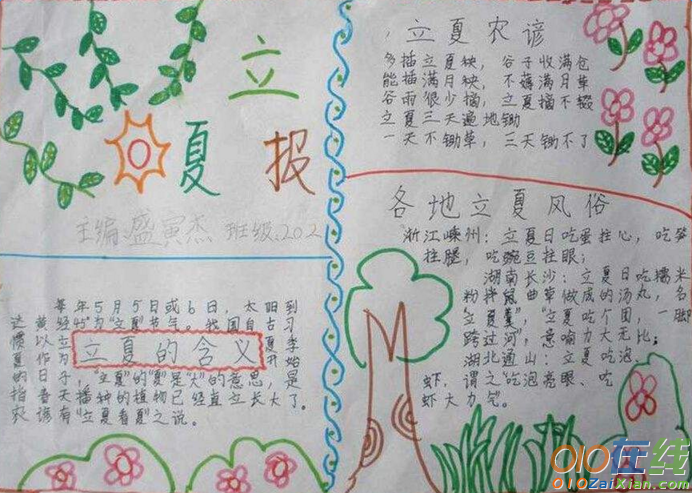 立
夏 报
主编:盛寅杰 班级:202
每年5月5日或6日,太阳到
立夏的含义
,"立夏"的"夏"是"大"的意思,是
指春天播种的植物已经直立长大了。
农谚有"立夏看夏"之说。
立夏农谚
多插立夏秧,谷子收满仓
能插满月秧,不薅满月草
谷雨很少摘,立夏摘不辍
立夏三天遍地锄
一天不锄草,三天锄不了
各地立夏风俗
浙江嵊州:立夏日吃蛋拄心,吃笋
拄腿,吃豌豆拄眼;
湖南长沙:立夏日吃糯米
粉拌鼠曲草做成的汤丸,名
"立夏羹","立夏吃个团,一脚
跨过河",意喻力大无比;
湖北通山:立夏吃泡、
虾,谓之"吃泡亮眼、吃
虾大力气"。
010在线
010ZaiXian.com